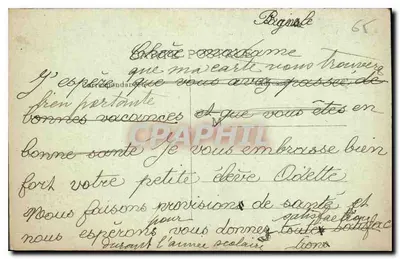 Brignole
65
Chère madame
que ma carte vous trouvera
J'espère que vous avez passée de
bien portante
bonnes vacances et que vous êtes en
CPAPHIL.COM
bonne santé je vous embrasse bien
fort votre petite élève Odette
Nous faisons provisions de santé et
pour satisfaction
nous espérons vous donner toute satisfac
durant l'année scolaire tions